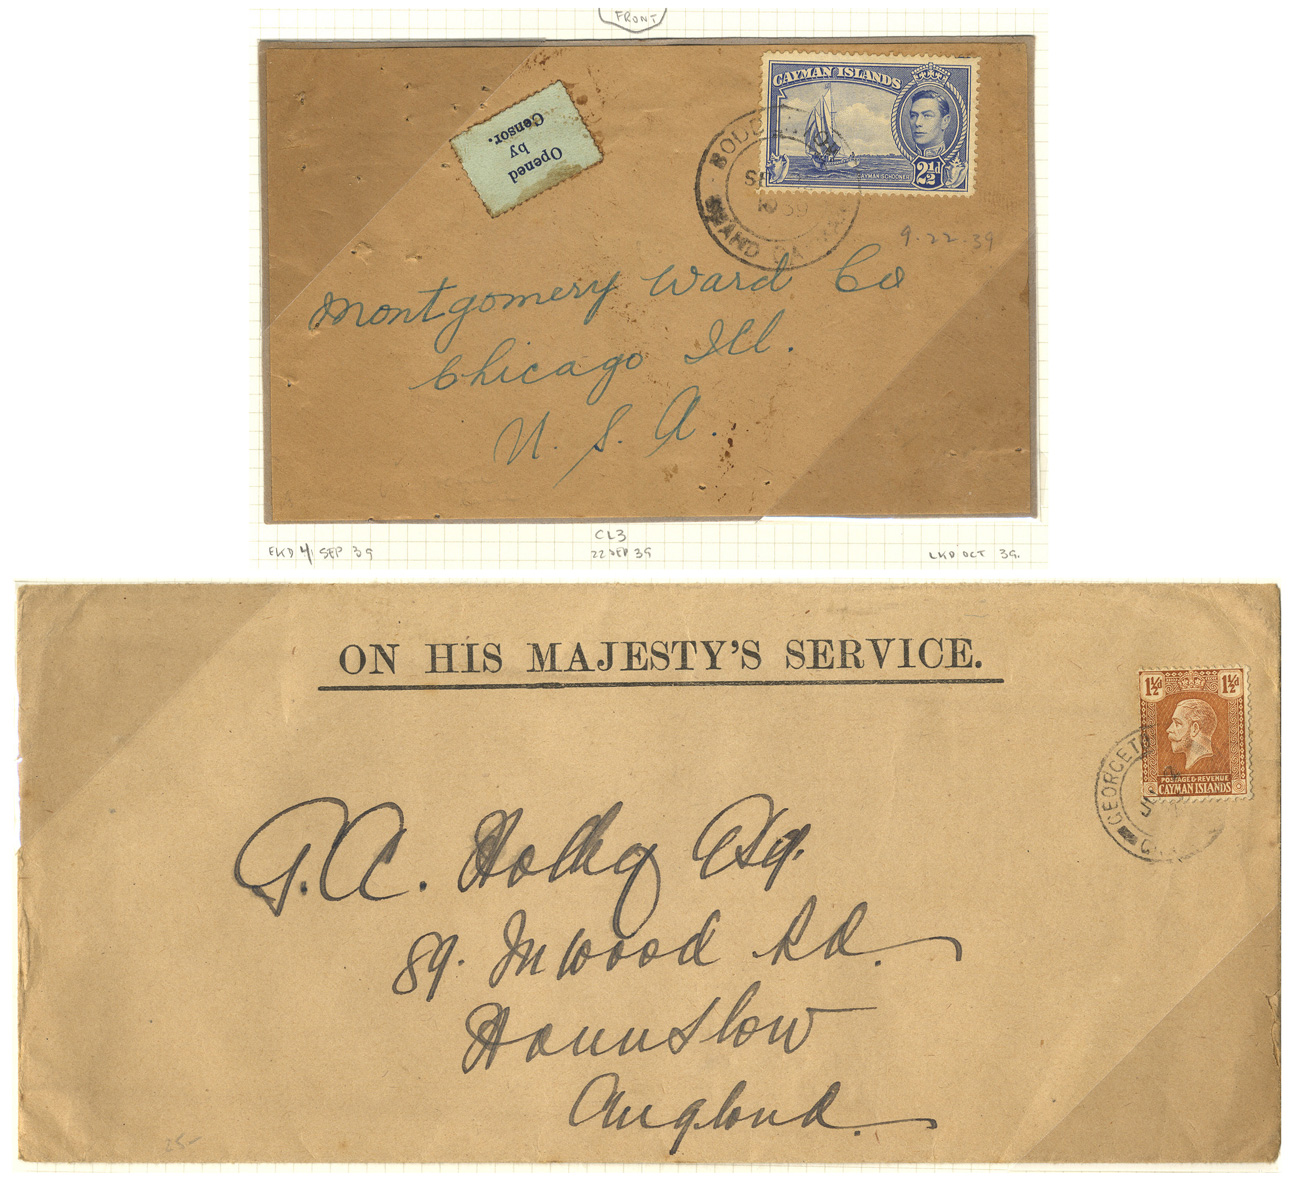 FRONT
Opened
by
Censor.
CAYMAN ISLANDS
CAYMAN SCHOONER
2½d
39
9.22.39
Montgomery Ward Co
Chicago Ill.
U. S. A.
CL3
EKD 4 SEP 39
22 SEP 39
LKD OCT 39.
ON HIS MAJESTY'S SERVICE.
1½d 1½d
POSTAGE & REVENUE
CAYMAN ISLANDS
Esq.
89. Inwood Rd.
Hounslow
England.
25-